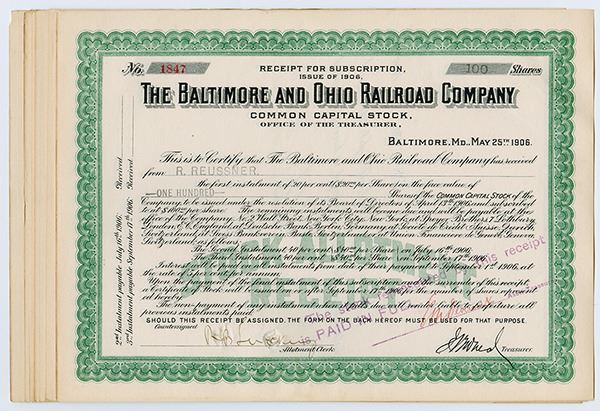 No. 1847
RECEIPT FOR SUBSCRIPTION,
ISSUE OF 1906,
100 Shares
THE BALTIMORE AND OHIO RAILROAD COMPANY
COMMON CAPITAL STOCK,
OFFICE OF THE TREASURER,
BALTIMORE, MD., MAY 25TH 1906.
This is to Certify that The Baltimore and Ohio Railroad Company has received
from R. REUSSNER.
the first instalment of 20 per cent ($20) per Share on the face value of
—ONE HUNDRED— Shares of the COMMON CAPITAL STOCK of the
Company, to be issued under the resolution of its Board of Directors of April 13th 1906 and subscribed
to at $100 per share. The remaining instalments will become due and will be payable at the
office of the Company, No. 2 Wall Street, New York City, New York; at Speyer Brothers, 7 Lothbury,
London, E.C., England; at Deutsche Bank, Berlin, Germany, or at
Switzerland, as follows:
The Second instalment 40 per cent ($40) per Share on July 16th 1906.
The Third instalment 40 per cent ($40) per Share on September 17th 1906.
Interest will be paid on instalments from date of their payment to September 1st 1906, at
the rate of 4 per cent per annum.
Upon the payment of the final instalment of this subscription and the surrender of this receipt,
a certificate will be on or after September 17th 1906 for the number of shares represent-
ed hereby.
The non-payment of any instalment when due will render liable to forfeiture all
previous instalments paid.
SHOULD THIS RECEIPT BE ASSIGNED, THE FORM ON THE BACK HEREOF MUST BE USED FOR THAT PURPOSE.
Countersigned
Allotment Clerk.
Treasurer.
2nd Instalment payable July 16th 1906. Received
3rd Instalment payable September 17th 1906. Received
The this receipt
is PAID IN FULL